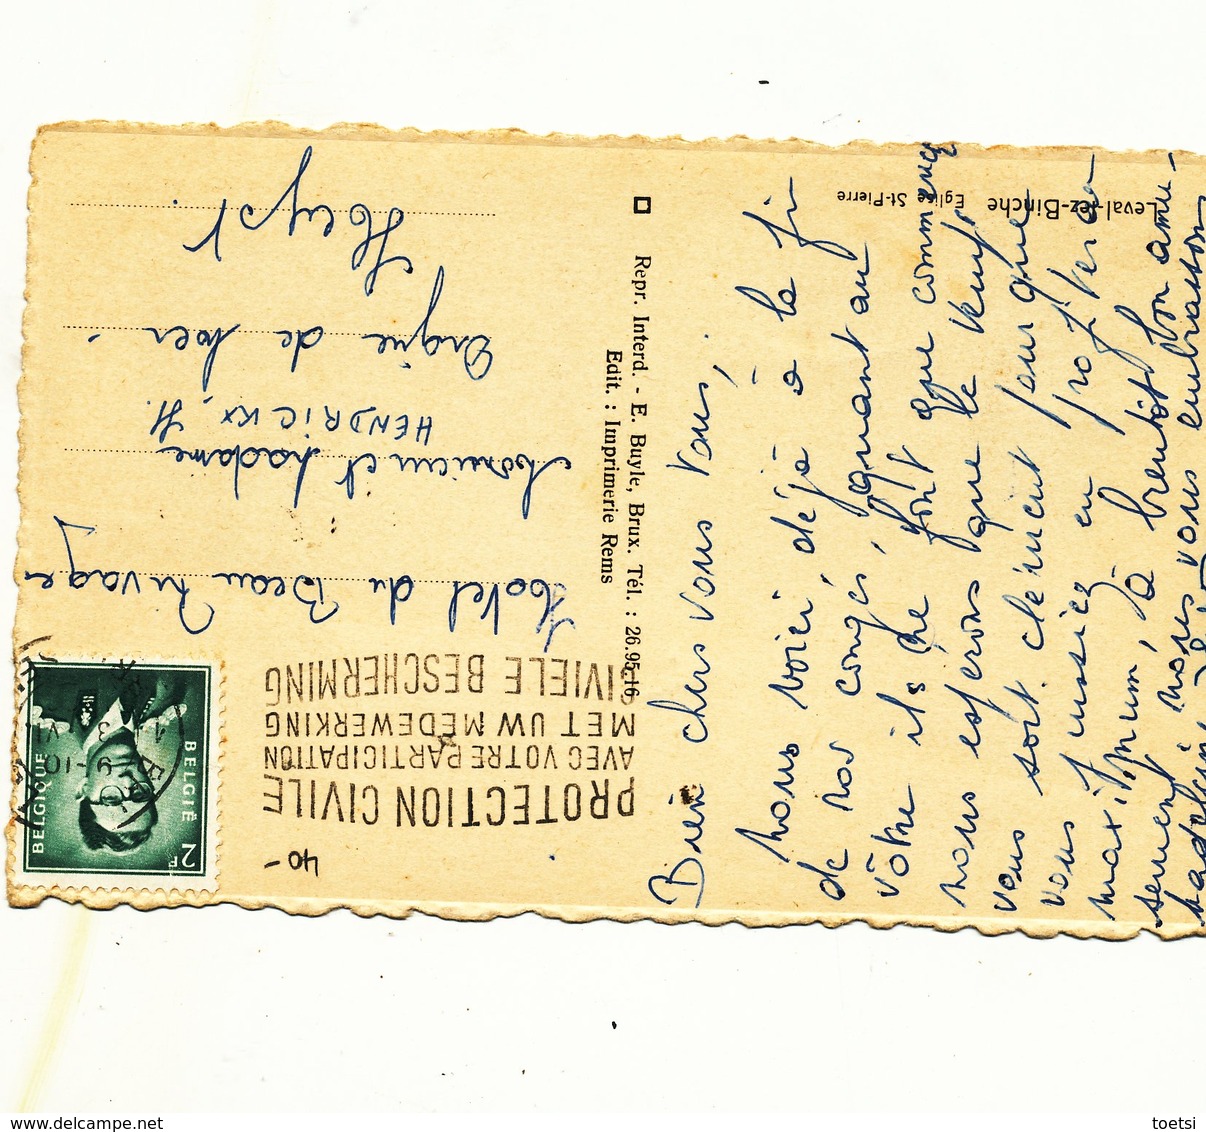 Leval-lez-Binche
Eglise St-Pierre
Bien chers vous tous,
nous voici déjà à la fin
de nos congés, quant au
vôtre ils ne font que commencer
nous espérons que le temps
vous soit clément pour que
vous puissiez en profiter au
maximum, à bientôt bon amu-
sement, nous vous embrassons
Repr. Interd. - E. Buyle, Brux. Tél. : 26.95.16
Edit. : Imprimerie Rems
PROTECTION CIVILE
AVEC VOTRE PARTICIPATION
MET UW MEDEWERKING
CIVIELE BESCHERMING
BELGIQUE
BELGIË
2F
40-
Monsieur et Madame
HENDRICKX, H.
Hotel du Beau Rivage
Digue de Mer
Heyst.
toetsi